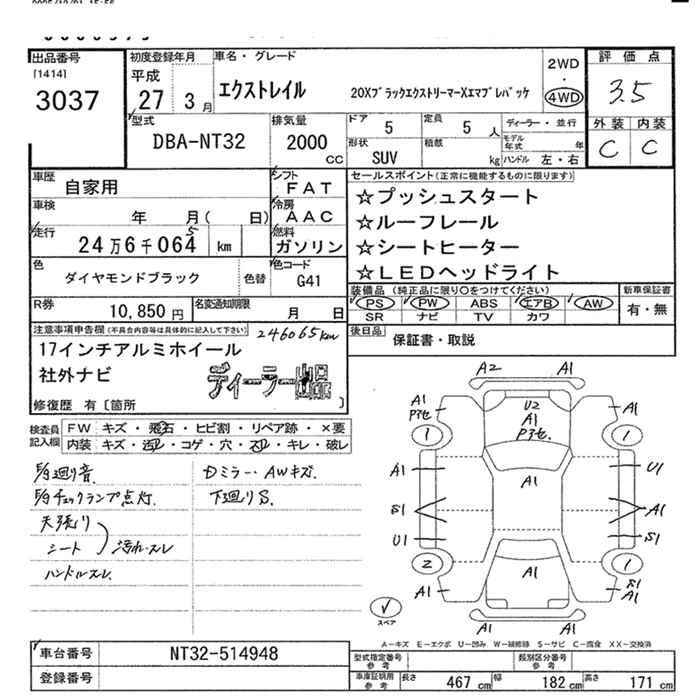 出品番号
[1414]
3037
初度登録年月
平成
27 3月
車名・グレード
エクストレイル 20XブラックエクストリーマーXエマブレパッケ
2WD
・
4WD
評価点
3.5
外装 内装
C C
型式
DBA-NT32
排気量
2000
CC
ドア 5
定員 5 人
形状 SUV
積載 kg
ディーラー・並行
モデル年式 年
ハンドル 左・右
車歴 自家用
シフト FAT
車検 年 月( 日)
冷房 AAC
走行 24万6千064 km
5
燃料 ガソリン
色 ダイヤモンドブラック 色替
色コード G41
R券 10,850円
名変通知期限 月 日
セールスポイント(正常に機能するものに限ります)
☆プッシュスタート
☆ルーフレール
☆シートヒーター
☆LEDヘッドライト
装備品 (純正品に限り○をつけてください)
PS PW ABS エアB AW
SR ナビ TV カワ
新車保証書
有・無
後日品 保証書・取説
注意事項申告欄(不具合内容等は具体的に記入して下さい)
246065km
17インチアルミホイール
社外ナビ
ディーラー出品
修復歴 有〔箇所 〕
検査員記入欄
FW キズ・飛石・ヒビ割・リペア跡・×要
内装 キズ・汚れ・コゲ・穴・スレ・キレ・破レ
廻り音
チェックランプ点灯.
天張り
シート
汚れ・スレ
ハンドルスレ.
Dミラー・AWキズ.
下廻りS.
A2 A1
A1
U2
A1
A1
1 1
A1
A1 U1
S1 A1
U1 S1
2 1
A1
A1
S1
A1
A1 A1
スペア
A－キズ E－エクボ U－凹み W－補修跡 S－サビ C－腐食 XX－交換済
車台番号 NT32-514948
登録番号
型式指定番号参考
類別区分番号参考
車庫証明用参考
長さ 467 cm 幅 182 cm 高さ 171 cm